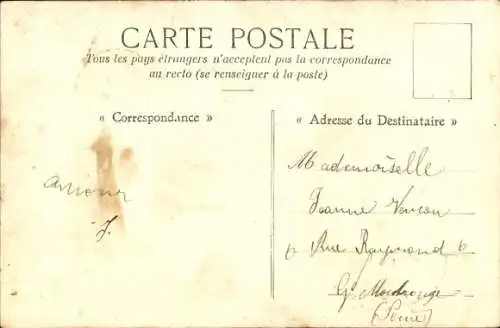 CARTE POSTALE
Tous les pays étrangers n'acceptent pas la correspondance
au recto (se renseigner à la poste)
« Correspondance »
« Adresse du Destinataire »
amour
J.
Mademoiselle
Jeanne
6 Rue Raymond 6
Gd Montrouge
(Seine)